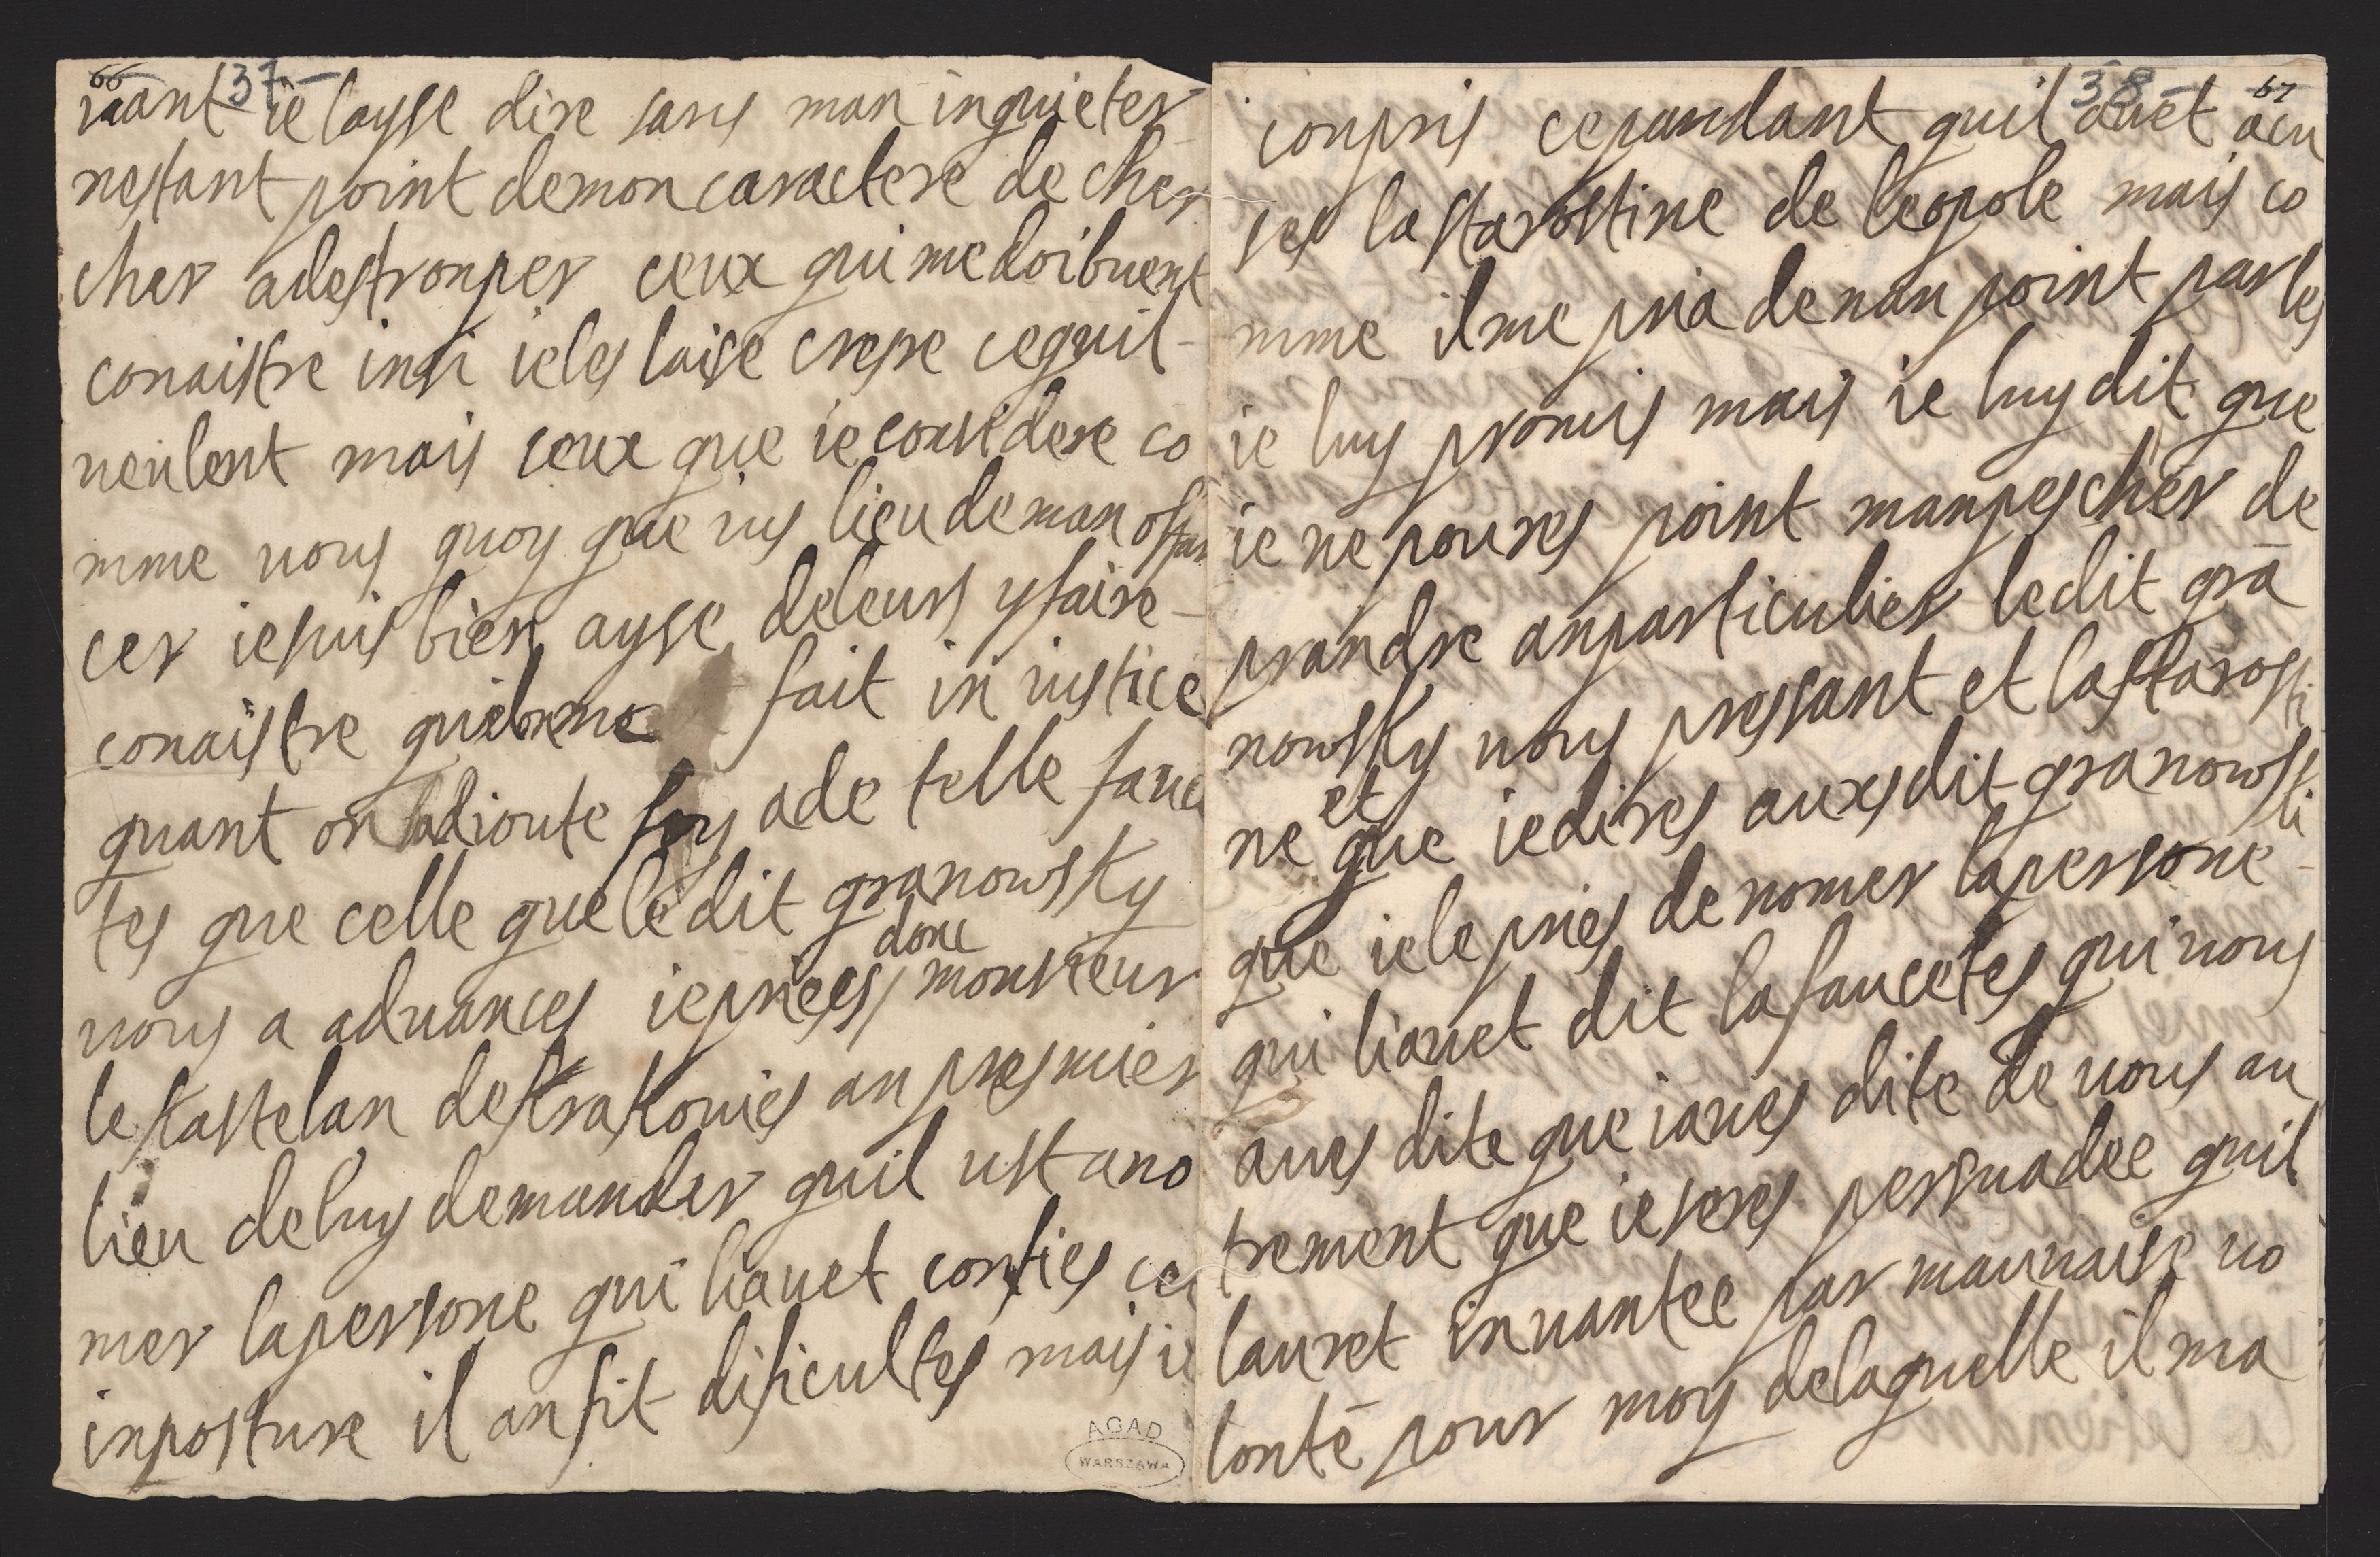 66 37-
uaant ie laysse dire sans man inquieter
nestant point demon caractere de cher
cher adestronper ceux qui me doibuent
conaistre insi ieles laise crere cequil-
ueulent mais ceux que ie considere co
mme uous quoy que ius lieu de man ofan
cer iesuis bien ayse deleurs yfaire-
conaistre quilonme fait in iustice
quant on adioute foy ade telle fauce
tes que celle queledit granowsky
uous a aduances iepriees donc monsieur
le kastelan de krakouies an presmier
lieu deluy demander quil ust ano
mer lapersone qui liauet confies cet
inposture il anfit dificultes mais ie
AGAD
WARSZAWA
38- 67
conpris cepandant quil auet acu
ses lastarostine de leopole mais co
mme ilme pria denan point parles
ie luy promis mais ie luy dit que
ie ne poures point manpescher de
prandre anparticulier ledit gra
nowsky uous pressant et lastarosti
ne et que iedires auxsdit granowski
que iele pries de nomer lapersone-
qui liauet dit lafaucetes qui uous
aues dite que iaues dite de uous au
trement que ieseres persuadee quil
lauret inuantee par mauuaise uo
lonté pour moy delaquelle il ma